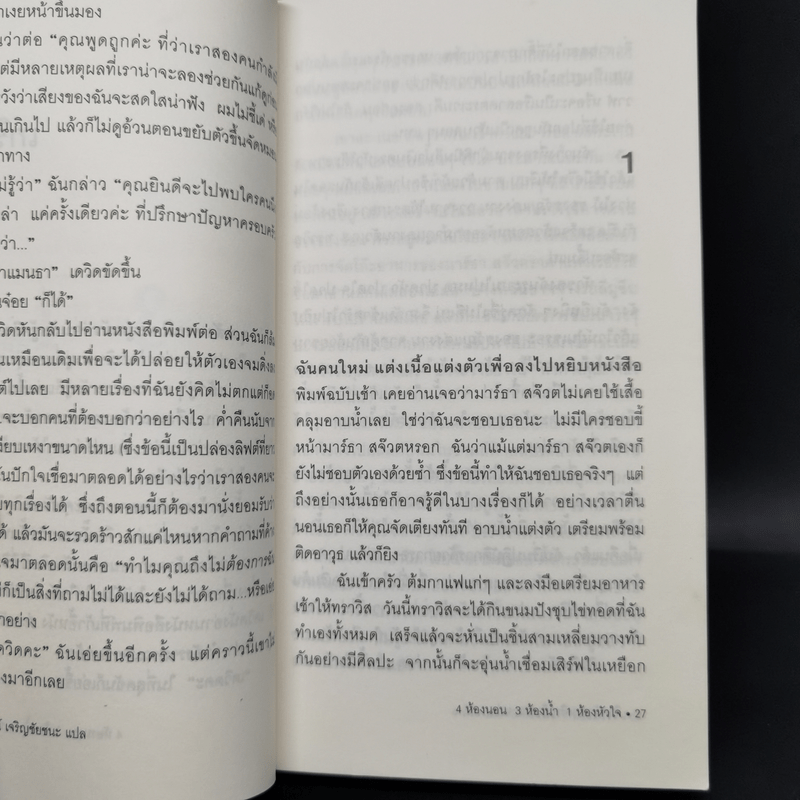 าเงยหน้าขึ้นมอง
นว่าต่อ “คุณพูดถูกค่ะ ที่ว่าเราสองคนกำลัง
ต่มีหลายเหตุผลที่เราน่าจะลองช่วยกันแก้ดูก่อน
วังว่าเสียงของฉันจะสดใสน่าฟัง ผมไม่ชี้เด่
นเกินไป แล้วก็ไม่ดูอ้วนตอนขยับตัวขึ้นจัดหมอน
าทาง
ม่รู้ว่า” ฉันกล่าว “คุณยินดีจะไปพบใครคน
ล่า แค่ครั้งเดียวค่ะ ที่ปรึกษาปัญหาครอบครัว
ว่า...”
าแมนธา” เดวิดขัดขึ้น
นจ๋อย “ก็ได้”
วิดหันกลับไปอ่านหนังสือพิมพ์ต่อ ส่วนฉันก็
นเหมือนเดิมเพื่อจะได้ปล่อยให้ตัวเองจมดิ่งลง
ต้ไปเลย มีหลายเรื่องที่ฉันยังคิดไม่ตกแต่ก็
จะบอกคนที่ต้องบอกว่าอย่างไร ค่ำคืนนับจาก
งียบเหงาขนาดไหน (ซึ่งข้อนี้เป็นปล่องลิฟต์ที่ยาว
นปักใจเชื่อมาตลอดได้อย่างไรว่าเราสองคนจะ
ยทุกเรื่องได้ ซึ่งถึงตอนนี้ก็ต้องมานั่งยอมรับว่า
ด้ แล้วมันจะรวดร้าวสักแค่ไหนหากคำถามที่ค้าง
จมาตลอดนั้นคือ “ทำไมคุณถึงไม่ต้องการฉัน
ก็เป็นสิ่งที่ถามไม่ได้และยังไม่ได้ถาม...หรือ
าอย่าง
ดวิดคะ” ฉันเอ่ยขึ้นอีกครั้ง แต่คราวนี้เขาไม่
งมาอีกเลย
เจริญชัยชนะ แปล
1
ฉันคนใหม่ แต่งเนื้อแต่งตัวเพื่อลงไปหยิบหนังสือ
พิมพ์ฉบับเช้า เคยอ่านเจอว่ามาร์ธา สจ๊วตไม่เคยใช้เสื้อ
คลุมอาบน้ำเลย ใช่ว่าฉันจะชอบเธอนะ ไม่มีใครชอบขี้
หน้ามาร์ธา สจ๊วตหรอก ฉันว่าแม้แต่มาร์ธา สจ๊วตเองก็
ยังไม่ชอบตัวเองด้วยซ้ำ ซึ่งข้อนี้ทำให้ฉันชอบเธอจริงๆ แต่
ถึงอย่างนั้นเธอก็อาจรู้ดีในบางเรื่องก็ได้ อย่างเวลาตื่น
นอนเธอก็ให้คุณจัดเตียงทันที อาบน้ำแต่งตัว เตรียมพร้อม
ติดอาวุธ แล้วก็ยิง
ฉันเข้าครัว ต้มกาแฟแก่ๆ และลงมือเตรียมอาหาร
เช้าให้ทราวิส วันนี้ทราวิสจะได้กินขนมปังชุบไข่ทอดที่ฉัน
ทำเองทั้งหมด เสร็จแล้วจะหั่นเป็นชิ้นสามเหลี่ยมวางทับ
กันอย่างมีศิลปะ จากนั้นก็จะอุ่นน้ำเชื่อมเสิร์ฟในเหยือก
4 ห้องนอน 3 ห้องน้ำ 1 ห้องหัวใจ • 27